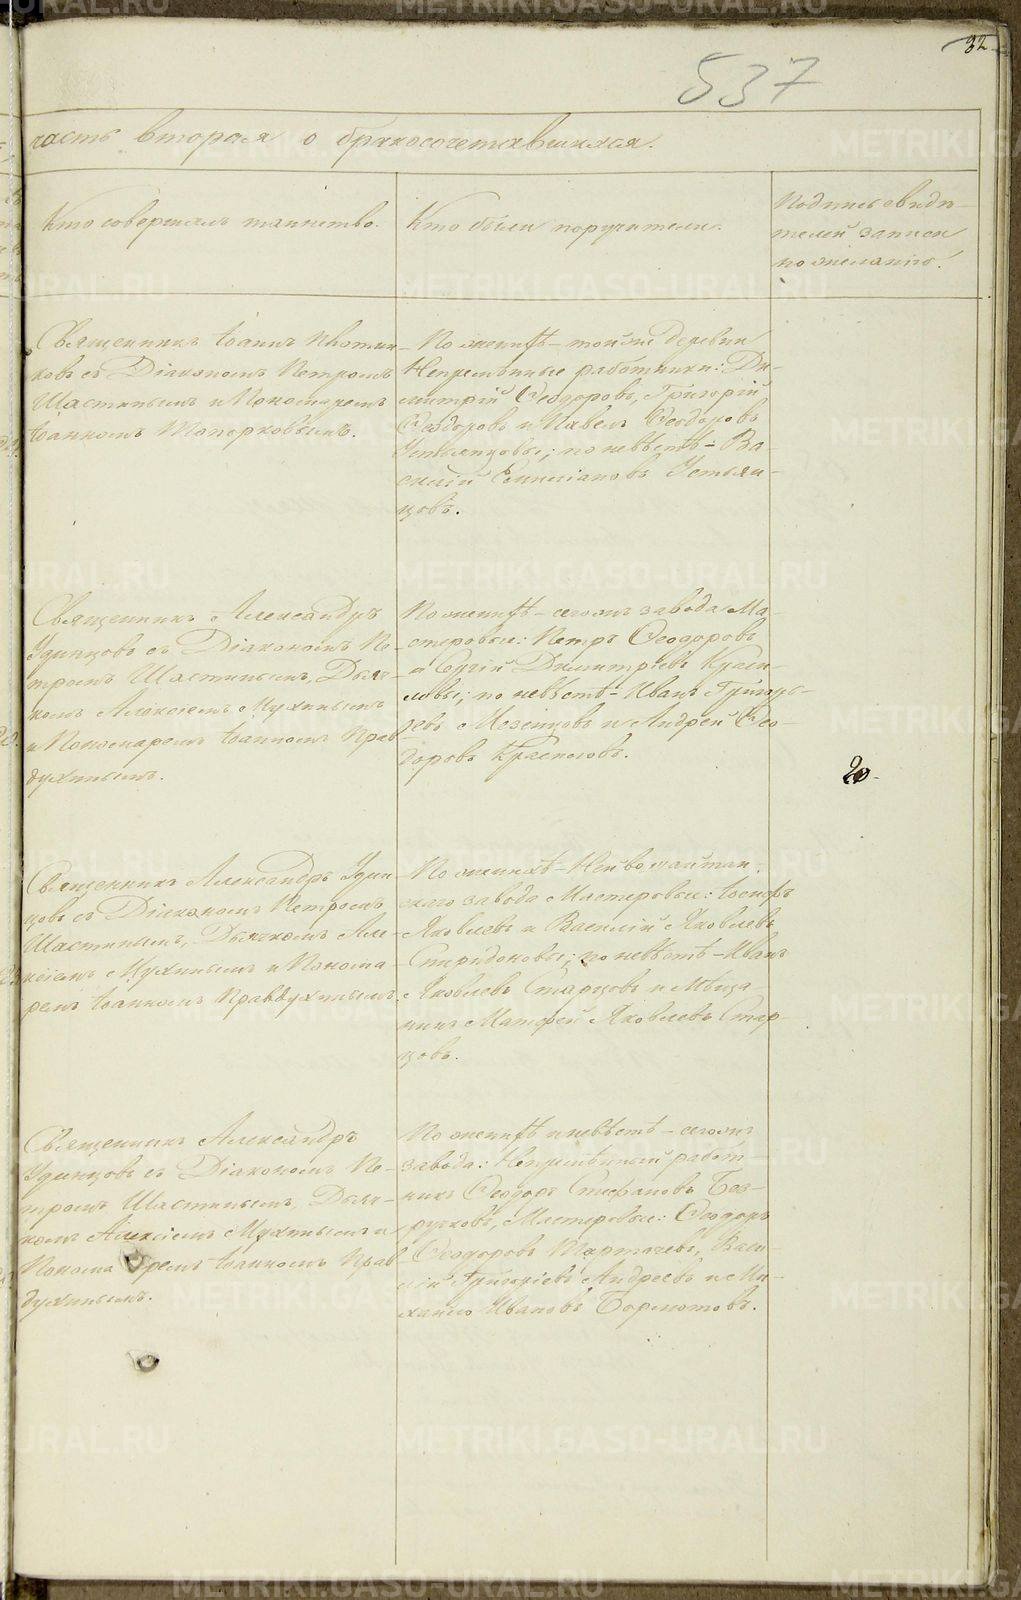 32
537
часть вторая о бракосочетавшихся.
Кто совершалъ таинство.
Кто были поручители.
Подпись свидѣ-
телей записи
по желанію.
Священникъ Іоаннъ
ковъ съ Діакономъ Петромъ
Шастинымъ и Пономаремъ
Іоанномъ Топорковымъ.
По женихѣ – тойже деревни
Непремѣнные работники: Ди-
митрій Ѳеодоровъ, Григорій
Ѳеодоровъ и Павелъ Ѳеодоровъ
Устьянцовы; по невѣстѣ – Ва-
силій Емиліановъ Устьян-
цовъ.
Священникъ Александръ
Удинцовъ съ Діакономъ Пе-
тромъ Шастинымъ, Дьяч-
комъ Алексіемъ Мухинымъ
и Пономаремъ Іоанномъ Прав
духинымъ.
По женихѣ – сегожъ завода Ма-
стеровые: Петръ Ѳеодоровъ
и Сергій Димитріевъ Краси-
ловы; по невѣстѣ – Иванъ Григорь-
евъ Мезенцовъ и Андрей Ѳео-
доровъ Красиловъ.
20.
Священникъ Александръ Удин
цовъ съ Діакономъ Петромъ
Шастинымъ, Дьячкомъ Але-
ксіемъ Мухинымъ и Понома-
ремъ Іоанномъ Правдухинымъ.
По женихѣ – Нейвошайтан-
скаго завода Мастеровые: Іосифъ
Яковлевъ и Василій Яковлевъ
Спиридоновы; по невѣстѣ – Иванъ
Яковлевъ Старцовъ и Мѣща-
нинъ Матфей Яковлевъ Стар-
цовъ.
Священникъ Александръ
Удинцовъ съ Діакономъ Пе-
тромъ Шастинымъ, Дьяч-
комъ Алексіемъ Мухинымъ и
Понома ремъ Іоанномъ Прав
духинымъ.
По женихѣ и невѣстѣ – сегожъ
завода: Непремѣнный работ-
никъ Ѳеодоръ Стефановъ Без-
руковъ, Мастеровые: Ѳеодоръ
Ѳеодоровъ Васи-
лій Григоріевъ Андреевъ и Ми-
хаилъ Ивановъ Бормотовъ.
METRIKI.GASO-URAL.RU